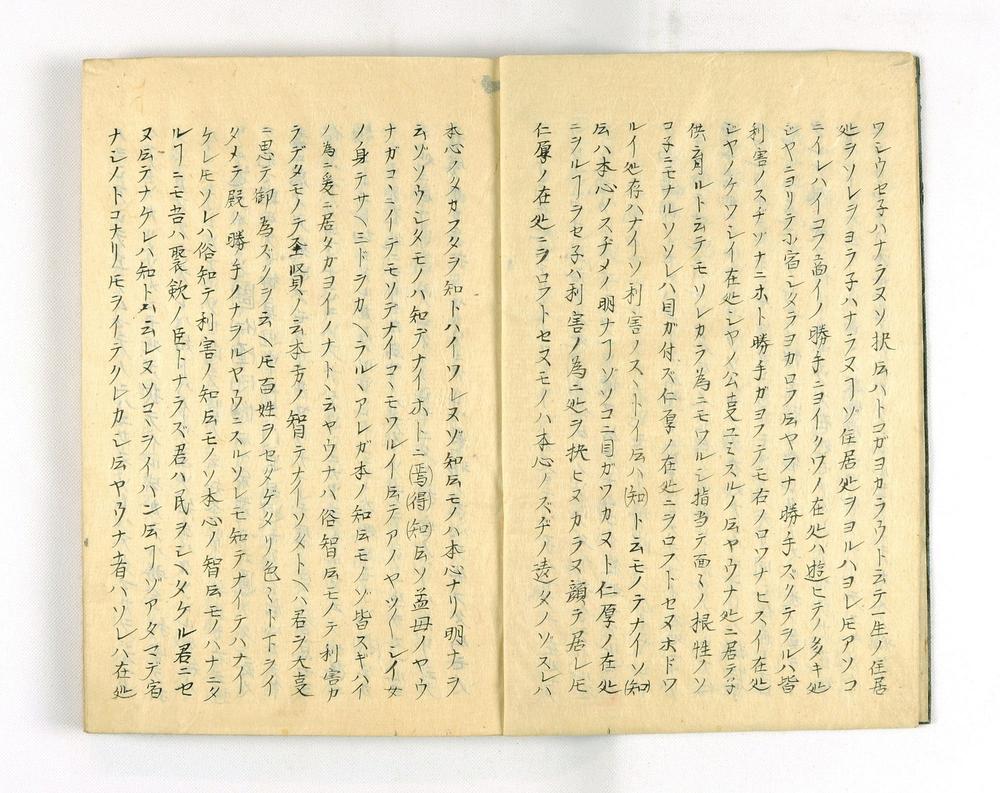 ワシウセ子ハナラヌソ択𪜈ハトコガヨカラウト云テ一生ノ住居
処ヲソレヲヨラ子ハナラヌヿソ住居処ヲヨルハヨレ𪜈アソコ
ニイレハイコフ面イノ勝手ニヨイクワノ在処ハ遊ヒテノ多キ処
シヤニヨリテ小宿シタラヨカロフ云ヤフナ勝手スクテヲルハ皆
利害ノスヂソナニホト勝手ガヨフテモ右ノロワナヒスイ在処
シヤノケワシイ在処シヤノ公夏ユミスルノ云ヤウナ処ニ居テ子
供育ルト云テモソレカラ為ニモワルシ指当テ面々ノ根性ノソ
コ子ニモナルソソレハ目ガ付ズ仁厚ノ在処ニヲロフトセヌホドワ
ルイ処存ハナイソ利害ノスヽトイ云ハ知ト云モノテナイソ知
云ハ本心ノスヂメノ明ナヿソソコニ目ガワカヌト仁厚ノ在処
ニヲルヿヲセ子ハ利害ノ為ニ処ヲ択ヒヌカラヌ顔テ居レ𪜈
仁厚ノ在処ニヲロフトセヌモノハ本心ノスヂノ遠タノソスレハ
本心ノタカフタヲ知トハイワレヌゾ知云モノハ本心ナリ明ナヲ
云ゾソウシタモノハ知デナイホトニ焉得知云ソ孟母ノヤウ
ナガコヽニイテモソデナイコヽモワルイ云テアノヤツ〱シイ女
ノ身テサヘミドヲカヘラルヽアレガ本ノ知云モノゾ皆スギハイ
ノ為ニ爰ニ居タガヨイノナトヽ云ヤウナハ俗智云モノテ利害カ
ラデタモノテ聖賢ノ云本方ノ智テナイソタトヘハ君ヲ大事
ニ思テ御為ズクヲ云ヘ𪜈百姓ヲセタゲタリ色々ト下ヲイ
タメテ殿ノ勝手ノナヲルヤウニスルソレモ知テナイテハナイ
ケレ𪜈ソレハ俗知テ利害ノ知云モノソ本心ノ智云モノハナニタ
ルヿニモ吾ハ聚歛ノ臣トナラズ君ハ民ヲシヘタケル君ニセ
ヌ云テナケレハ知トハ云レヌソコヽヲイハン云ヿゾアタマデ宿
ナシノトコナリ𪜈ヲイテクレカシ云ヤウナ者ハソレハ在処